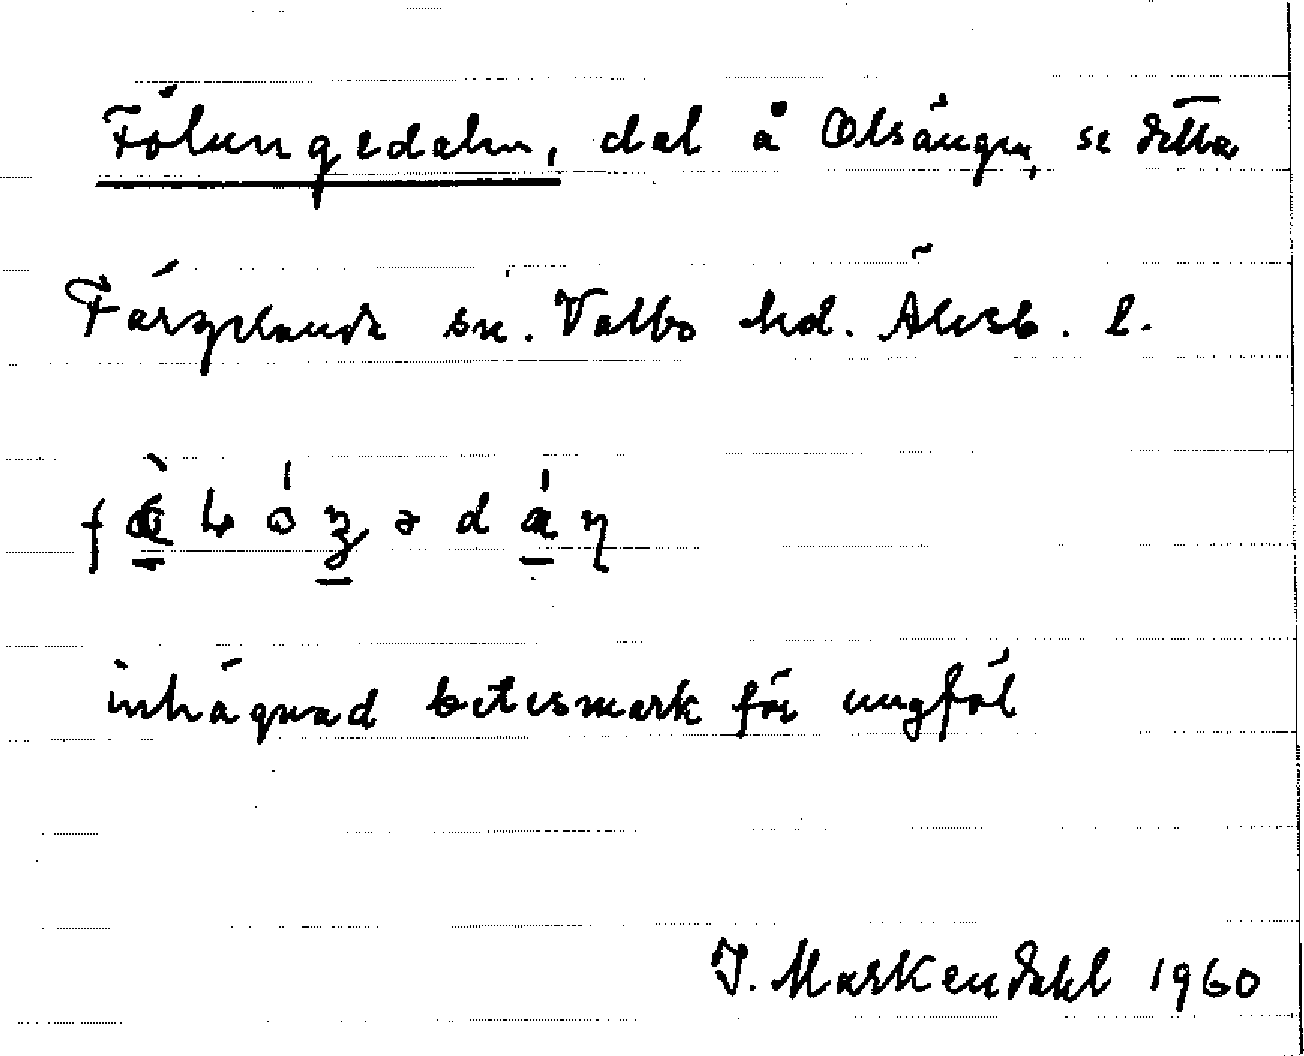 Fölungedalen, dal å Olsängen, se detta
Färgelanda sn. Valbo hd. Älvsb. l.
inhägnad betesmark för ungföl
J. Markendahl 1960